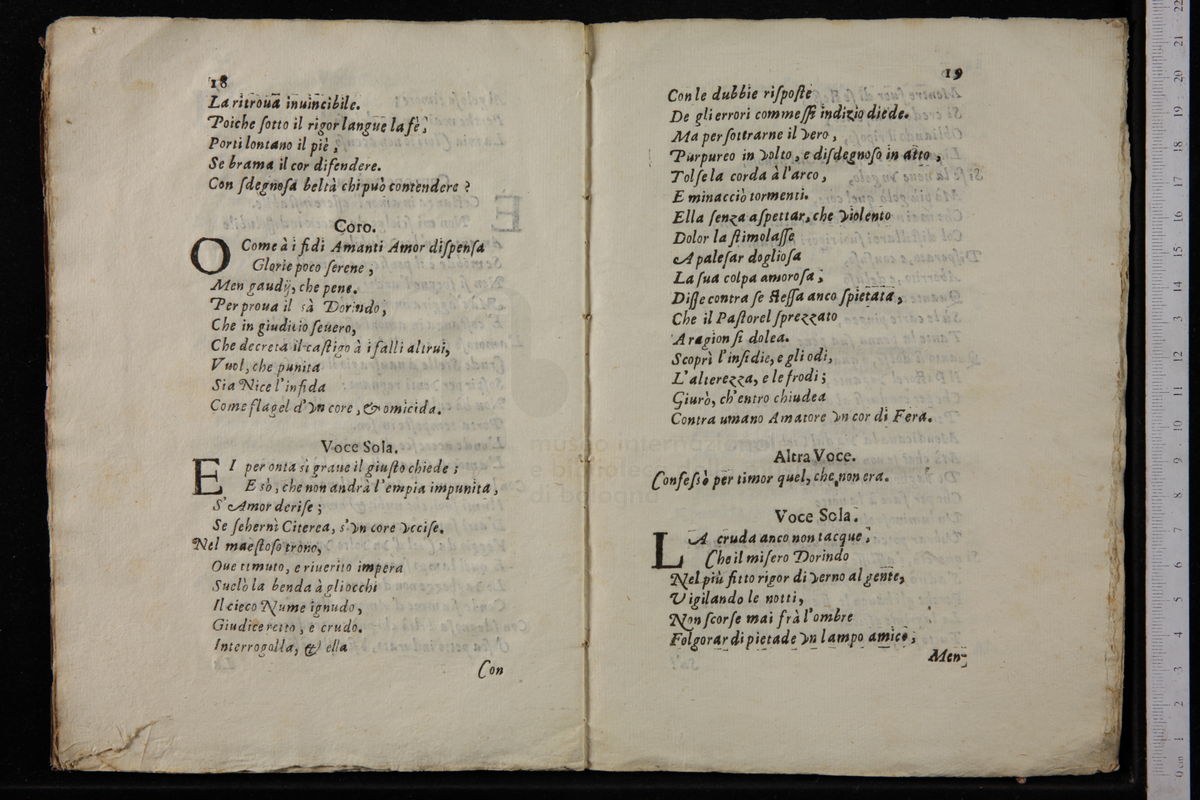 18
La ritroua inuincibile.
Poiche sotto il rigor langue la fè,
Porti lontano il piè,
Se brama il cor difendere.
Con sdegnosa beltà chi può contendere ?
Coro.
O Come à i fidi Amanti Amor dispensa
Glorie poco serene,
Men gaudij, che pene.
Per proua il sà Dorindo,
Che in giuditio seuero,
Che decreta il castigo à i falli altrui,
Vuol, che punita
Sia Nice l'infida
Come flagel d'vn core, & omicida.
Voce Sola.
E I per onta sì graue il giusto chiede ;
E sò, che non andrà l'empia impunita,
S'Amor derise ;
Se schernì Citerea, s'vn core vccise.
Nel maestoso trono,
Oue timuto, e riuerito impera
Suelò la benda à gliocchi
Il cieco Nume ignudo,
Giudice retto, e crudo.
Interrogolla, & ella
Con
19
Con le dubbie risposte
De gli errori commessi indizio diede.
Ma per sottrarne il vero,
Purpureo in volto, e disdegnoso in atto,
Tolse la corda à l'arco,
E minacciò tormenti.
Ella senza aspettar, che violento
Dolor la stimolasse
A palesar dogliosa
La sua colpa amorosa ;
Disse contra se stessa anco spietata,
Che il Pastorel sprezzato
A ragion si dolea.
Scoprì l'insidie, e gli odi,
L'alterezza, e le frodi ;
Giurò, ch'entro chiudea
Contra umano Amatore vn cor di Fera.
Altra Voce.
Confessò per timor quel, che non era.
Voce Sola.
L A cruda anco non tacque,
Che il misero Dorindo
Nel più fitto rigor di verno algente,
Vigilando le notti,
Non scorse mai frà l'ombre
Folgorar di pietade vn lampo amico ;
Men-
museo internazionale
e biblioteca
di bologna